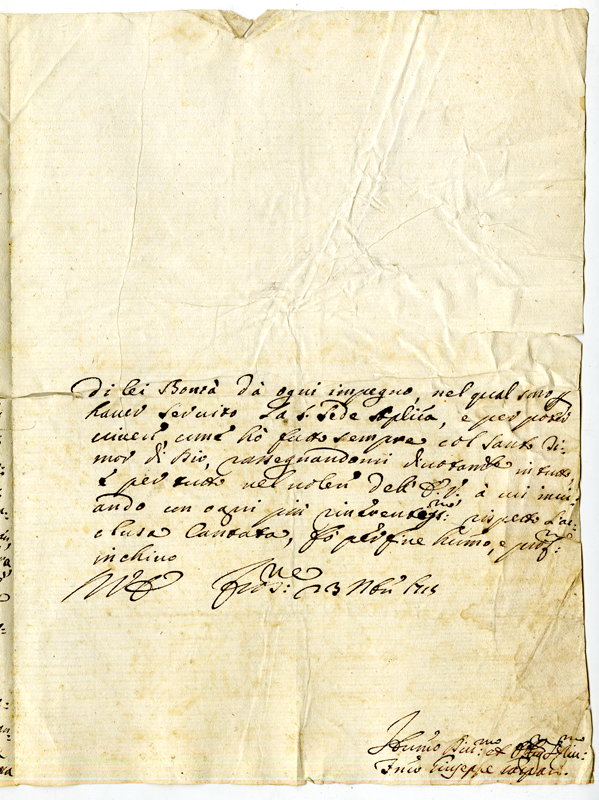 di lei Bontà dà ogni impegno, nel qual sarò p
haver servito la S. Sede Aplica, e per poter
vivere, come hò fatto sempre col santo ti-
mor di Dio, rassegnandomi divotamte in tutto
e per tutto nel volere dell' à cui invi-
ando con ogni più riverentmo rispetto l'ac-
clusa Cantata, fò per fine humo, e
inchino
23 Nbre
Humo et
Giuseppe